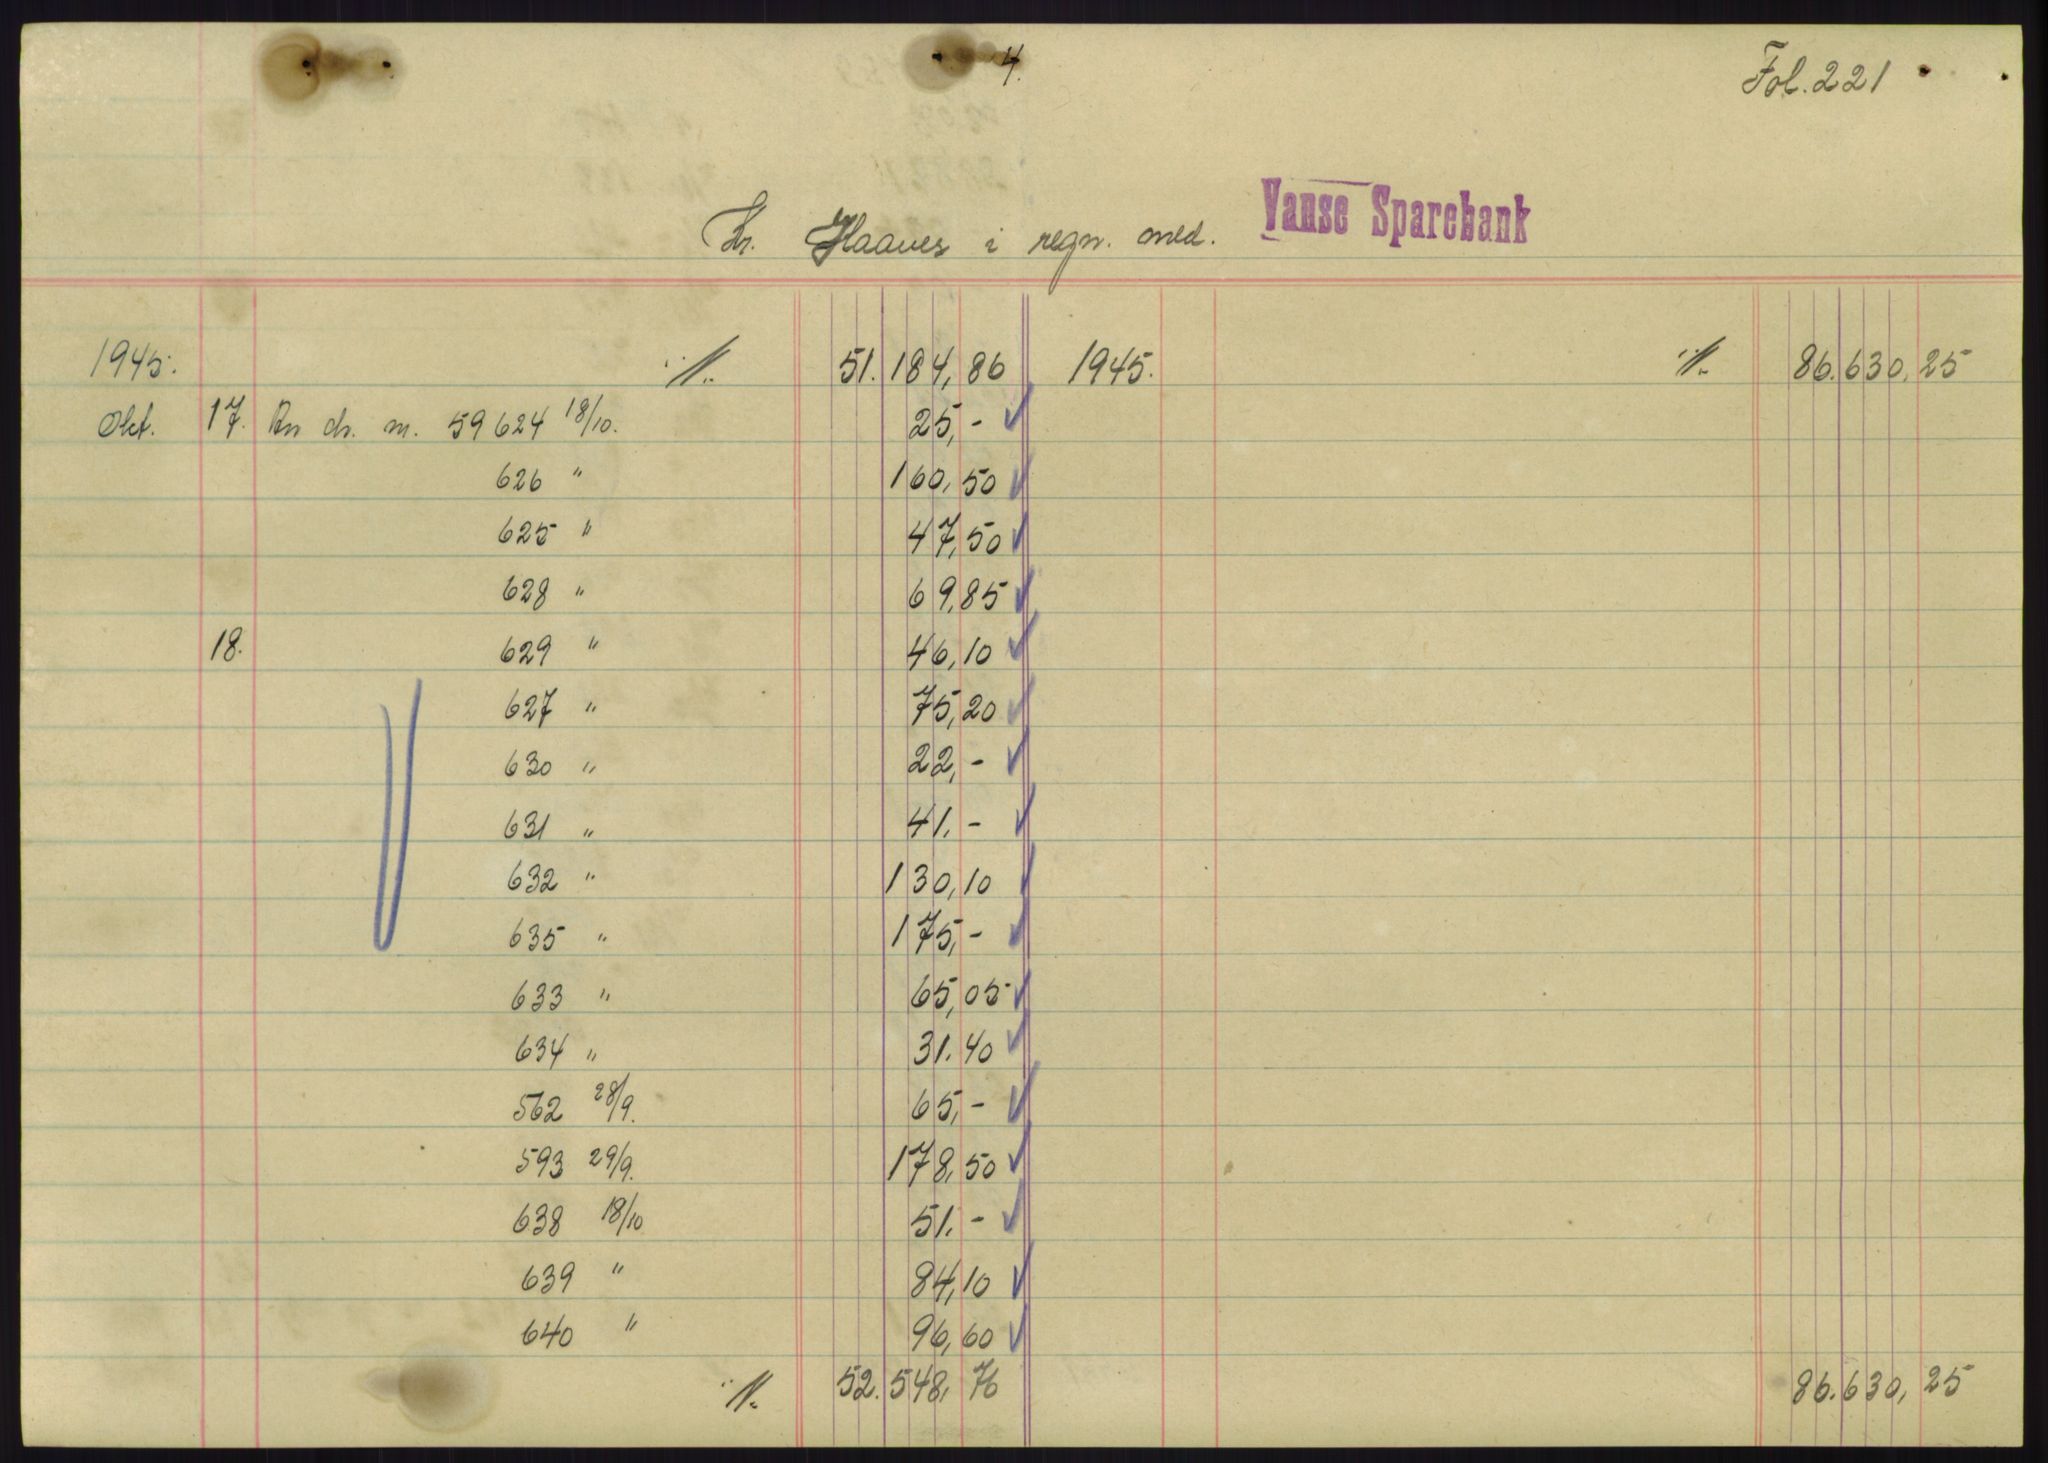 4.
Fol. 221
Kr. Haaves i regn. med. Vanse Sparebank
1945. 51.184,86 1945. 86.630,25
Okt. 17. An ch. nr. 59624 18/10. 25,-
626 " 160,50
625 " 47,50
628 " 69,85
18. 629 " 46,10
627 " 75,20
630 " 22,-
631 " 41.-
632 " 130,10
635 " 175,-
633 " 65,05
634 " 31.40
562 28/9. 65,-
593 29/9. 178,50
638 18/10 51.-
639 " 84,10
640 " 96,60
52.548,76 86.630,25